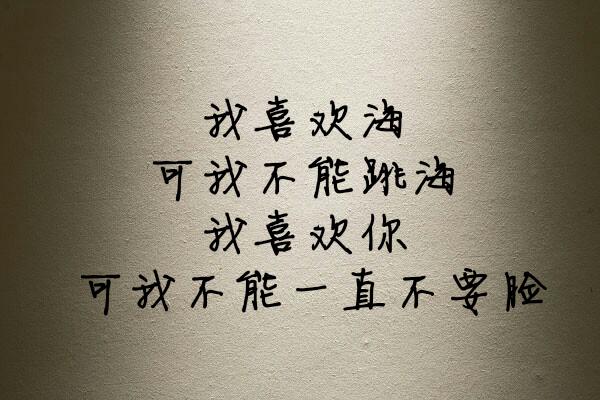 我喜欢海
可我不能跳海
我喜欢你
可我不能一直不要脸